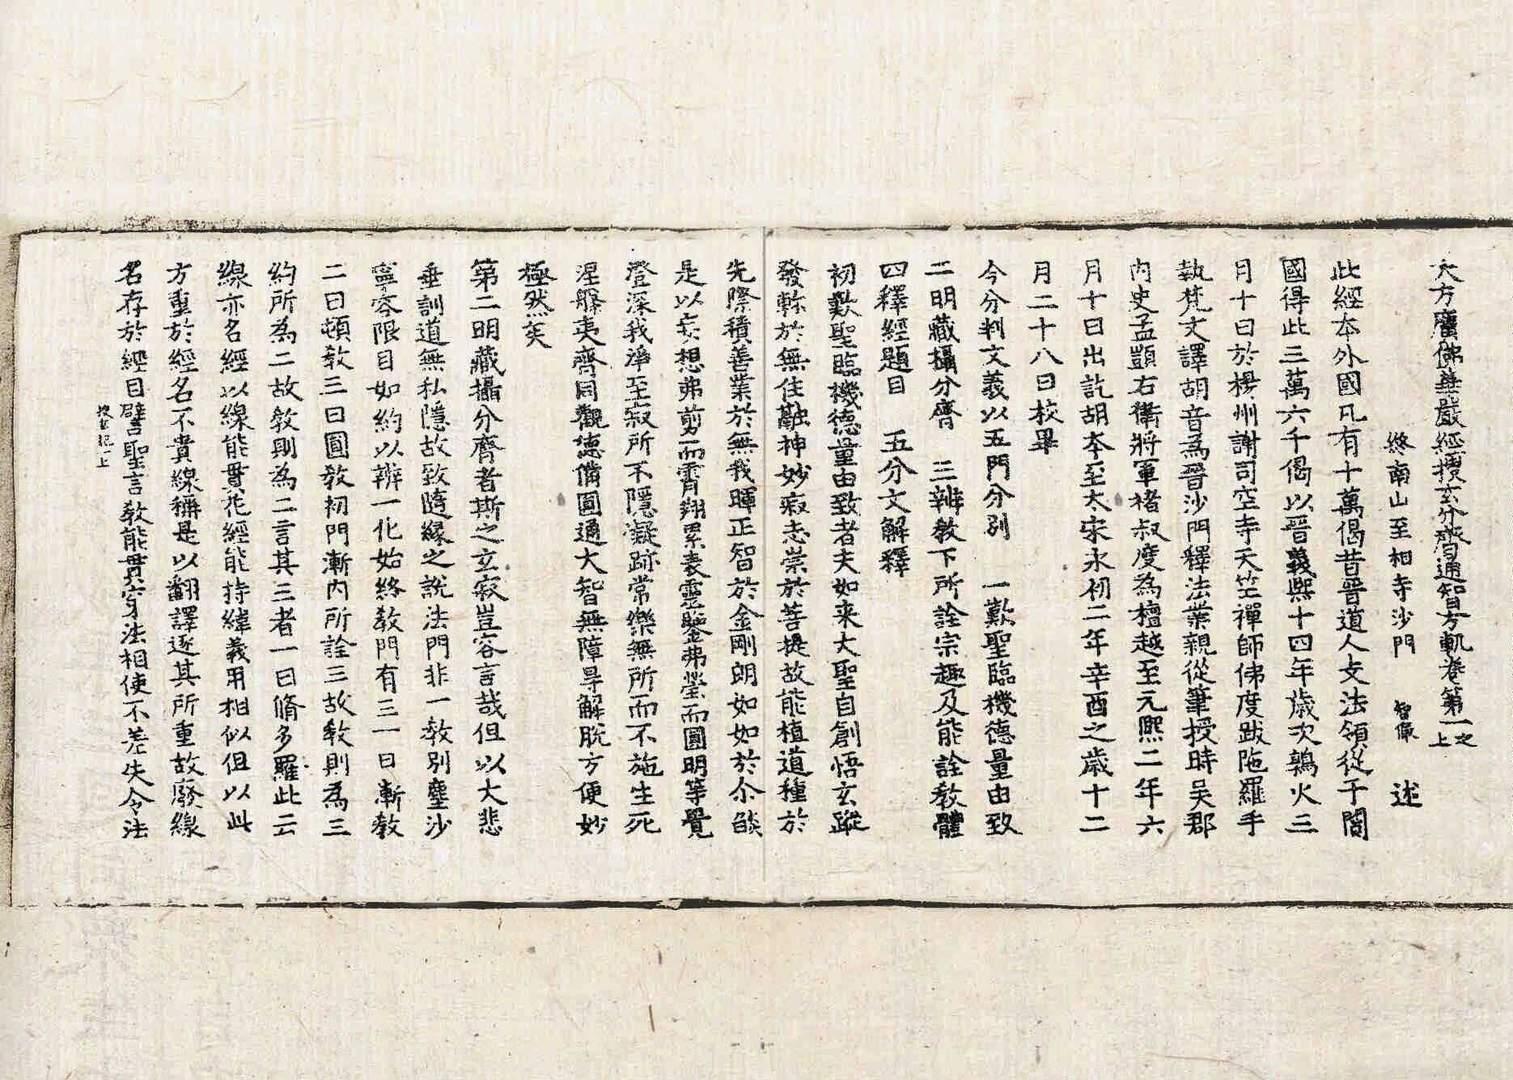 大方廣佛華嚴經搜玄分齊通智方軌卷第一之上
終南山至相寺沙門 智儼 述
此經本外國凡有十萬偈昔晉道人支法領從于闐
國得此三萬六千偈以晉義熙十四年歲次鶉火三
月十日於楊州謝司空寺天竺禪師佛度跋陁羅手
執梵文譯胡音為晉沙門釋法業親從筆授時吳郡
內史孟顗右衛將軍褚叔度為檀越至元熙二年六
月十日出訖胡本至太宋永初二年辛酉之歲十二
月二十八日校畢
今分判文義以五門分別 一歎聖臨機德量由致
二明藏攝分齊 三辨教下所詮宗趣及能詮教體
四釋經題目 五分文解釋
初歎聖臨機德量由致者夫如来大聖自創悟玄蹤
發軫於無住融神妙寂志崇於菩提故能植道種於
先際積善業於無我暉正智於金剛朗如如於尒燄
是以妄想弗剪而霄翔累表靈鑒弗瑩而圓明等覺
澄深我淨至寂所不隱凝跡常樂無所而不施生死
涅槃夷齊同觀德備圓通大智無障㝵解脫方便妙
極然矣
第二明藏攝分齊者斯之玄寂豈容言哉但以大悲
垂訓道無私隱故致隨緣之說法門非一教別塵沙
寧容限目如約以辨一化始終教門有三一曰漸教
二曰頓教三曰圓教初門漸內所詮三故教則為三
約所為二故教則為二言其三者一曰脩多羅此云
線亦名經以線能貫花經能持緯義用相似但以此
方重於經名不貴線稱是以翻譯逐其所重故廢線
名存於經目譬聖言教能貫穿法相使不差失令法
搜玄記一上